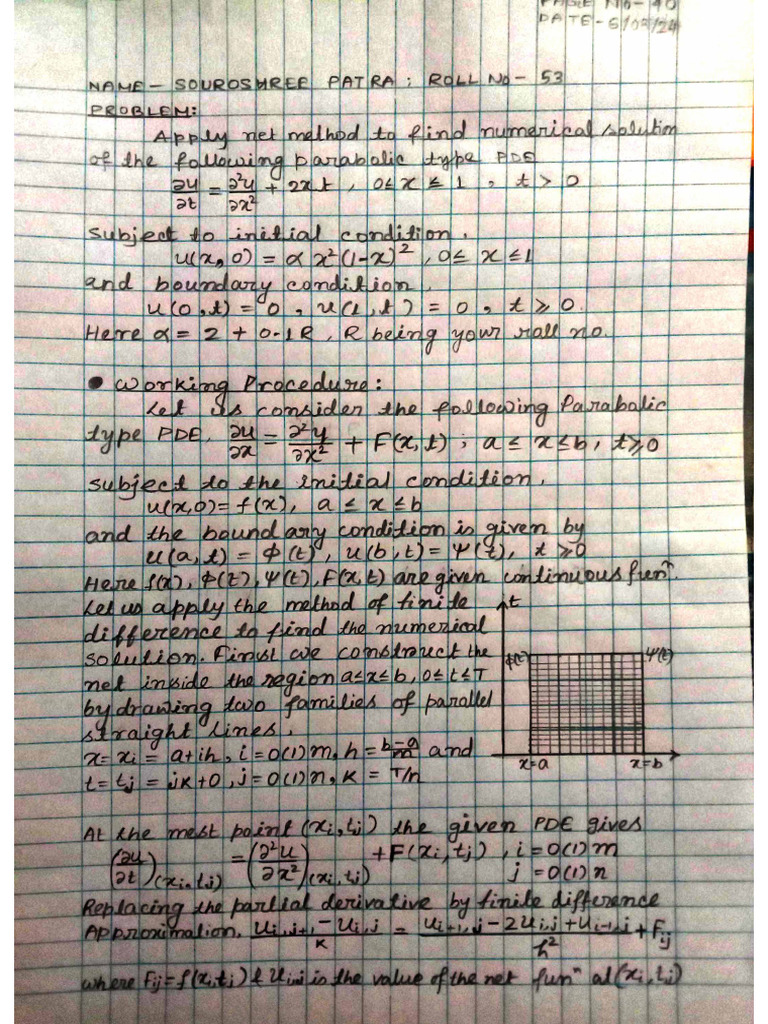 PAGE NO-40
DATE-6/02/24
NAME - SOUROSHREE PATRA ; ROLL NO - 53
PROBLEM:
Apply net method to find numerical solution
of the following parabolic type PDE
∂u/∂t = ∂²u/∂x² + 2xt , 0≤x≤1 , t>0
subject to initial condition,
u(x,0) = α x²(1-x)² , 0≤ x ≤1
and boundary condition,
u(0,t) = 0 , u(1,t) = 0 , t ≥ 0.
Here α = 2 + 0.1R , R being your roll no.
• Working Procedure:
Let us consider the following Parabolic
type PDE, ∂u/∂x = ∂²u/∂x² + F(x,t) ; a≤ x≤b, t≥0
subject to the initial condition,
u(x,0) = f(x), a ≤ x ≤ b
and the boundary condition is given by
u(a,t) = Φ(t), u(b,t) = Ψ(t), t ≥0
Here f(x), Φ(t), Ψ(t), F(x,t) are given continuous funⁿ.
Let us apply the method of finite
difference to find the numerical
solution. First we construct the
net inside the region a≤x≤b, 0≤t≤T
by drawing two families of parallel
straight lines,
x = xi = a+ih, i=0(1)m, h = b-a/m and
t = tj = jk+0, j=0(1)n, k = T/n
t
Φ(t)
Ψ(t)
x=a
x=b
At the mest point (xi,tj) the given PDE gives
(∂u/∂t)(xi,tj) = (∂²u/∂x²)(xi,tj) + F(xi,tj) , i=0(1)m
j=0(1)n
Replacing the partial derivative by finite difference
Approximation, ui,j+1 - ui,j/k = ui+1,j - 2ui,j + ui-1,j/h² + Fij
where Fij = f(xi,tj) & ui,j is the value of the net funⁿ at (xi,tj)